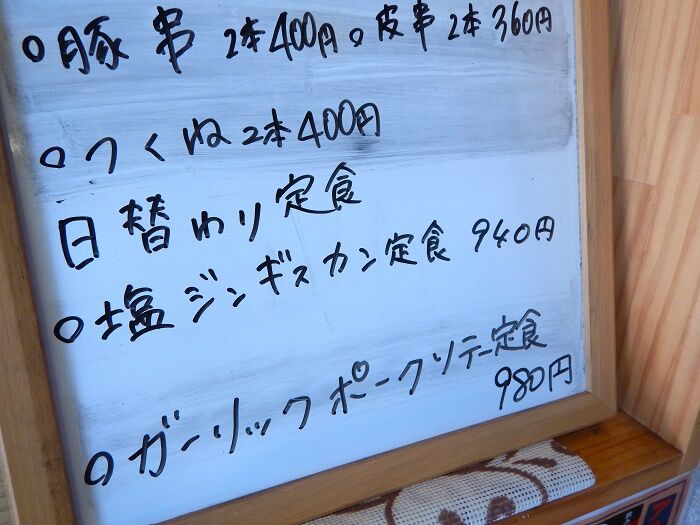 ○豚串 2本400円 ○皮串 2本 360円
○つくね2本400円
日替わり定食
○塩ジンギスカン定食 940円
○ガーリックポークソテー定食
980円